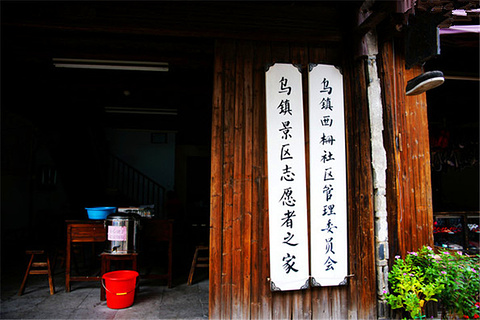 乌镇景区志愿者之家
乌镇西栅社区管理委员会